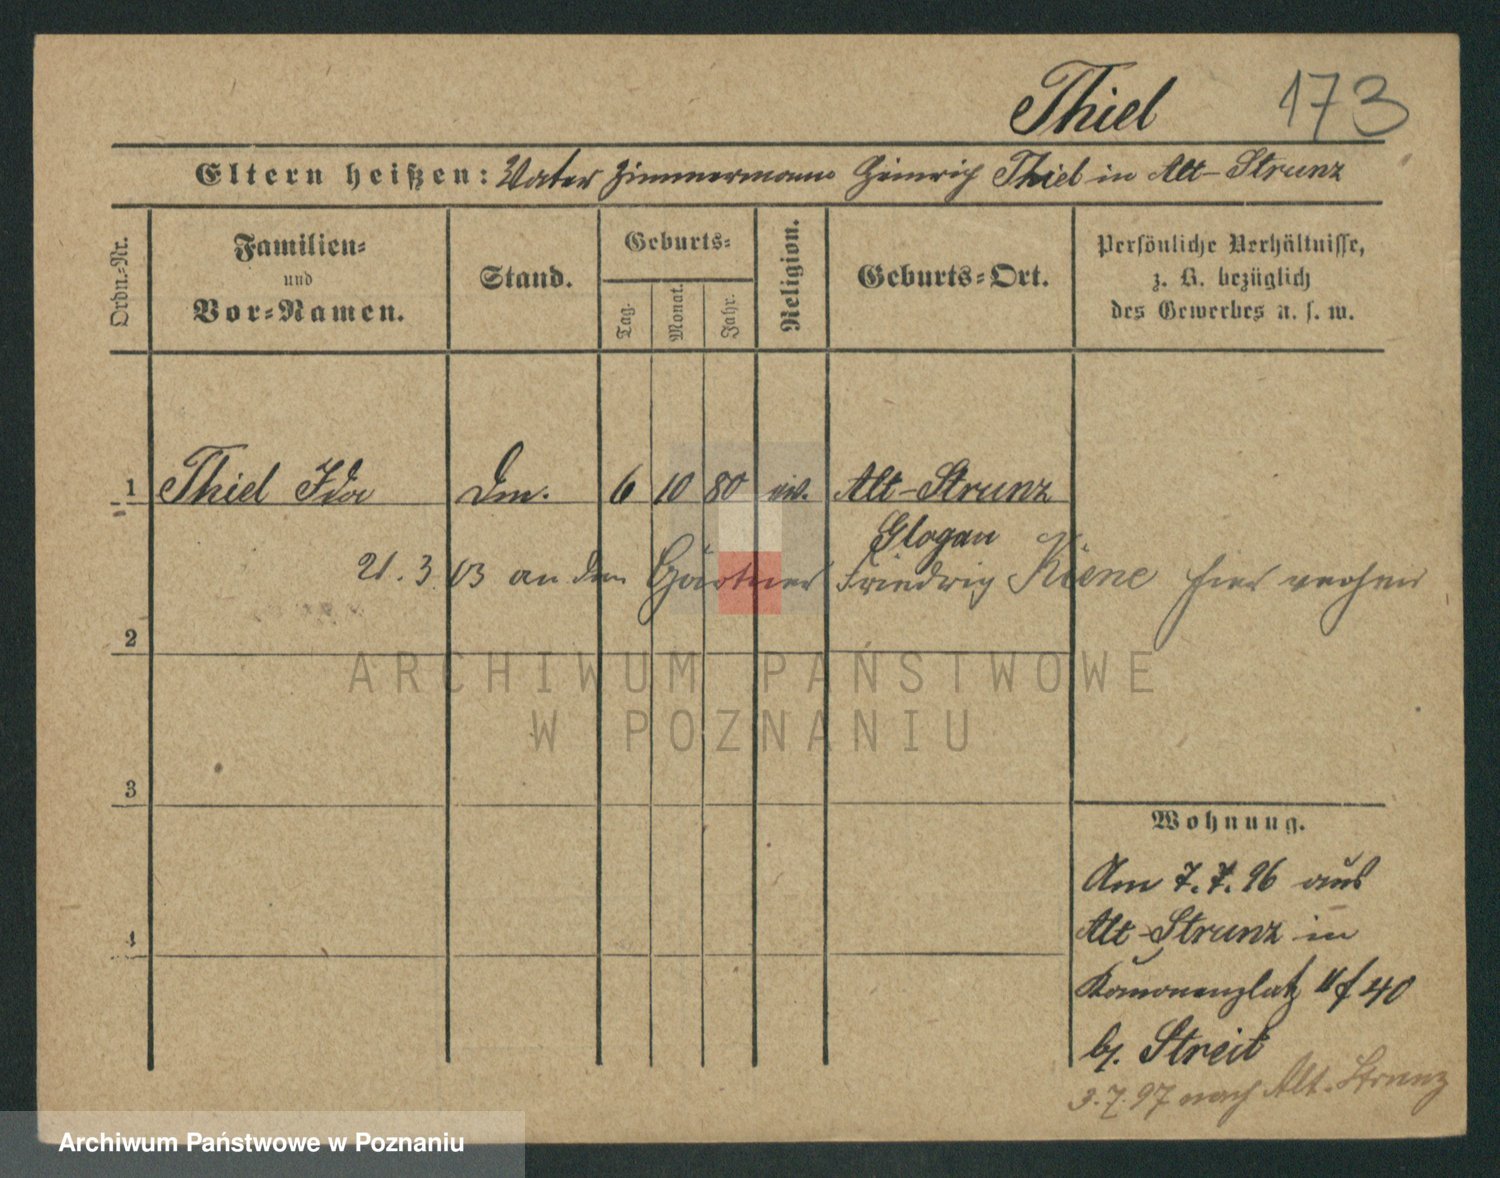 Thiel 173
Eltern heißen: Vater Zimmermann Heinrich Thiel in Alt-Strunz
Ordn.-Nr.
Familien-
und
Vor-Namen.
Stand.
Geburts-
Tag.
Monat.
Jahr.
Religion.
Geburts-Ort.
Persönliche Verhältnisse,
z. B. bezüglich
des Gewerbes u. s. w.
1 Thiel Ida 6 10 80 ev. Alt-Strunz
Glogau
21. 3. 03 an den Gärtner Friedrich Kiene hier
2
3
4
Wohnung.
Am 7. 7. 96 aus
Alt-Strunz in
40
b. Streit
3. 7. 97 nach Alt-Strunz
ARCHIWUM PAŃSTWOWE
W POZNANIU
Archiwum Państwowe w Poznaniu